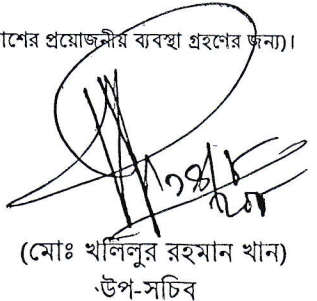 াশের প্রয়োজনীয় ব্যবস্থা গ্রহণের জন্য)।
(মোঃ খলিলুর রহমান খান)
উপ-সচিব